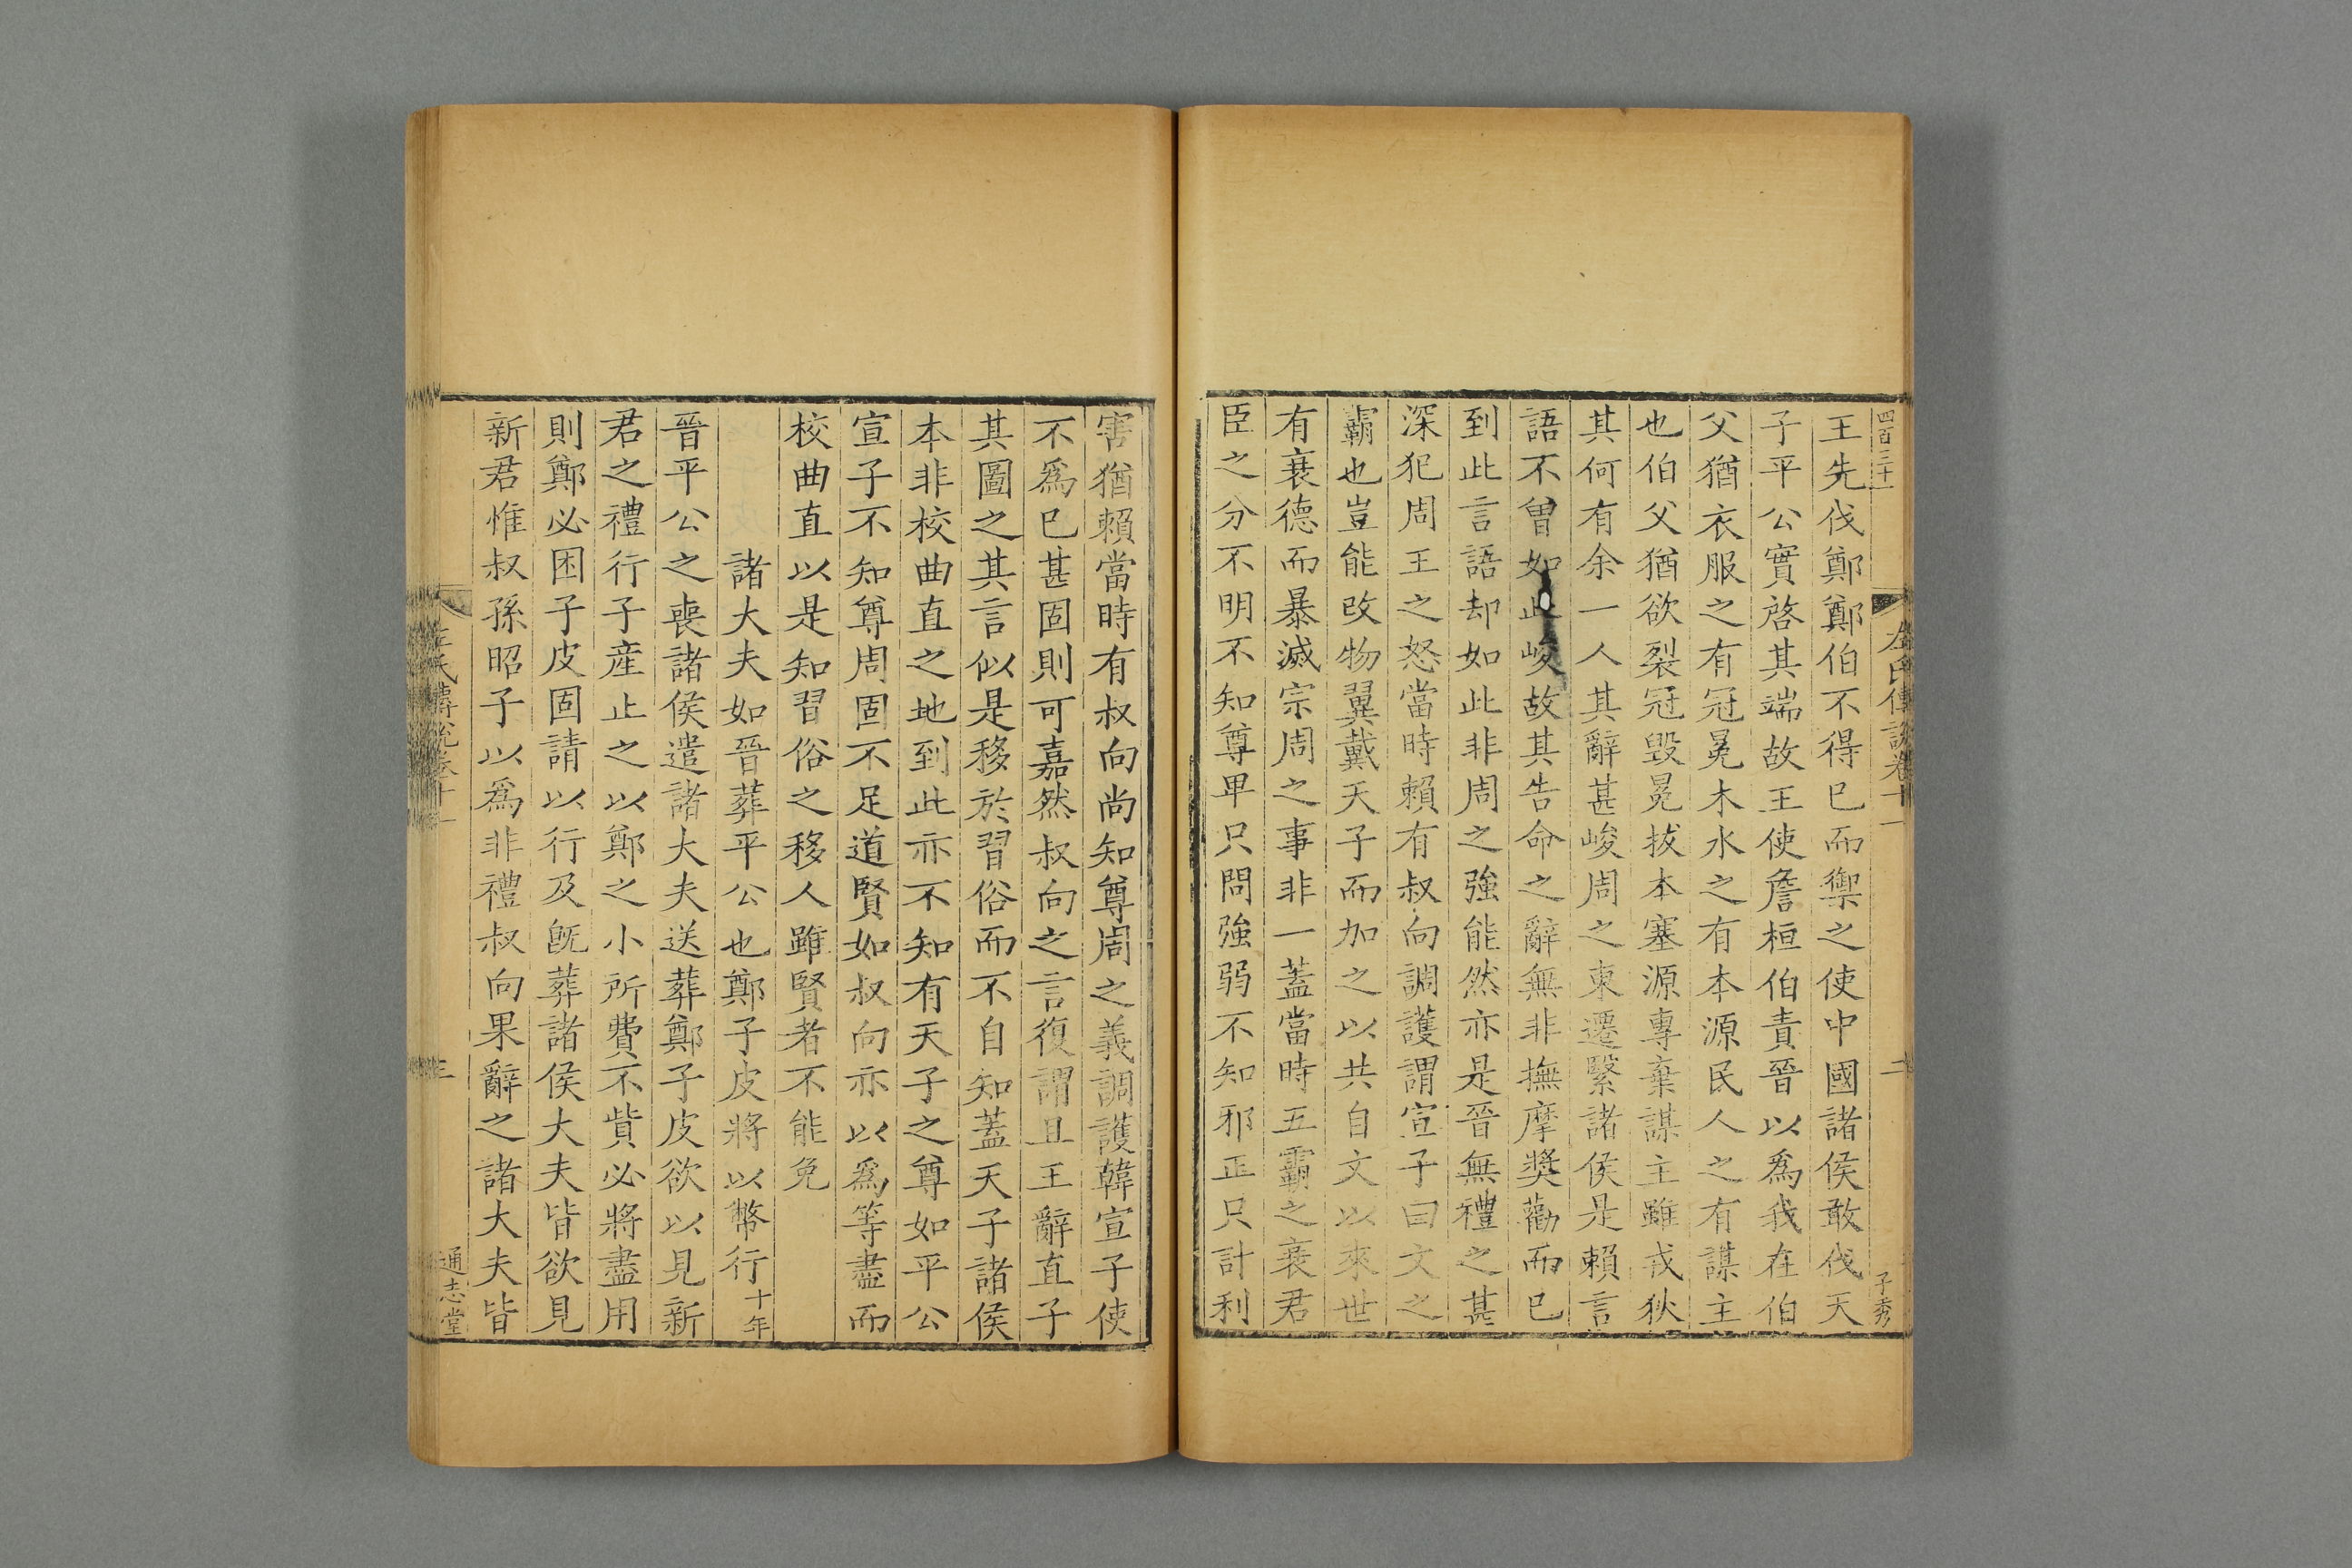 四百三十一
左氏傳說卷十一
二
子秀
王先伐鄭鄭伯不得已而禦之使中國諸侯敢伐天
子平公實啓其端故王使詹桓伯責晉以爲我在伯
父猶衣服之有冠冕木水之有本源民人之有謀主
也伯父猶欲裂冠毁冕拔本塞源專棄謀主雖戎狄
其何有余一人其辭甚峻周之東遷繄諸侯是賴言
語不曾如此峻故其告命之辭無非撫摩奬勸而已
到此言語却如此非周之強能然亦是晉無禮之甚
深犯周王之怒當時賴有叔向調護謂宣子曰文之
霸也豈能改物翼戴天子而加之以共自文以來世
有衰德而暴滅宗周之事非一蓋當時五霸之衰君
臣之分不明不知尊卑只問強弱不知邪正只計利
害猶賴當時有叔向尚知尊周之義調護韓宣子使
不爲已甚固則可嘉然叔向之言復謂且王辭直子
其圖之其言似是移於習俗而不自知蓋天子諸侯
本非校曲直之地到此亦不知有天子之尊如平公
宣子不知尊周固不足道賢如叔向亦以爲等盡而
校曲直以是知習俗之移人雖賢者不能免
諸大夫如晉葬平公也鄭子皮將以幣行十年
晉平公之喪諸侯遣諸大夫送葬鄭子皮欲以見新
君之禮行子產止之以鄭之小所費不貲必將盡用
則鄭必困子皮固請以行及旣葬諸侯大夫皆欲見
新君惟叔孫昭子以爲非禮叔向果辭之諸大夫皆
左氏傳說卷十一
三
通志堂